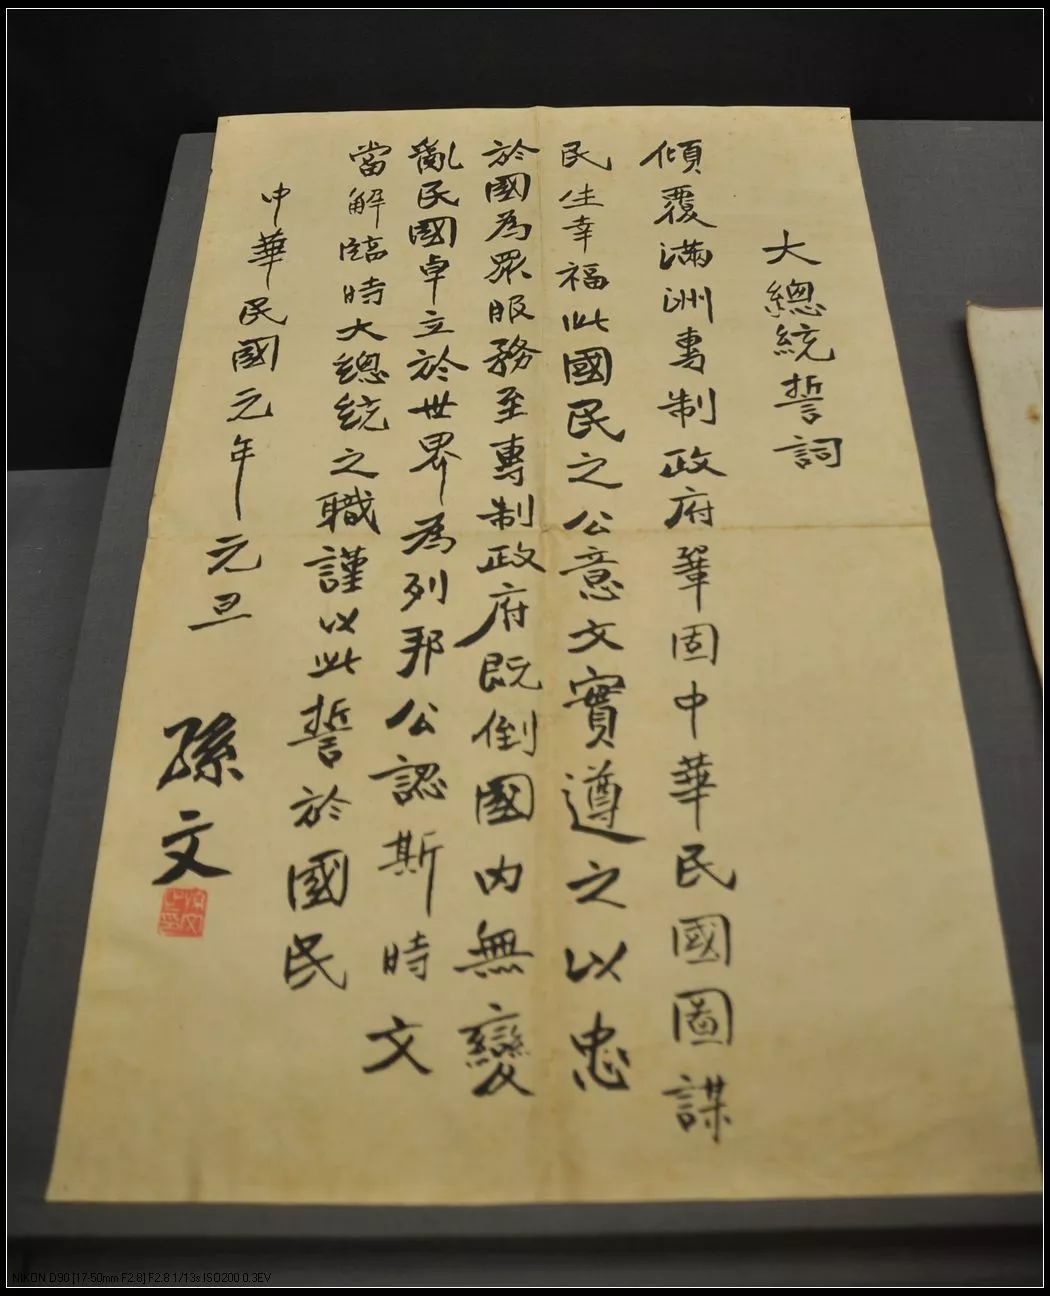 大總統誓詞
傾覆滿洲專制政府鞏固中華民國圖謀
民生幸福此國民之公意文實遵之以忠
於國為眾服務至專制政府既倒國內無變
亂民國卓立於世界為列邦公認斯時文
當解臨時大總統之職謹以此誓於國民
中華民國元年元旦
孫文
NIKON D90 [17-50mm F2.8] F2.8 1/13s ISO200 0.3EV